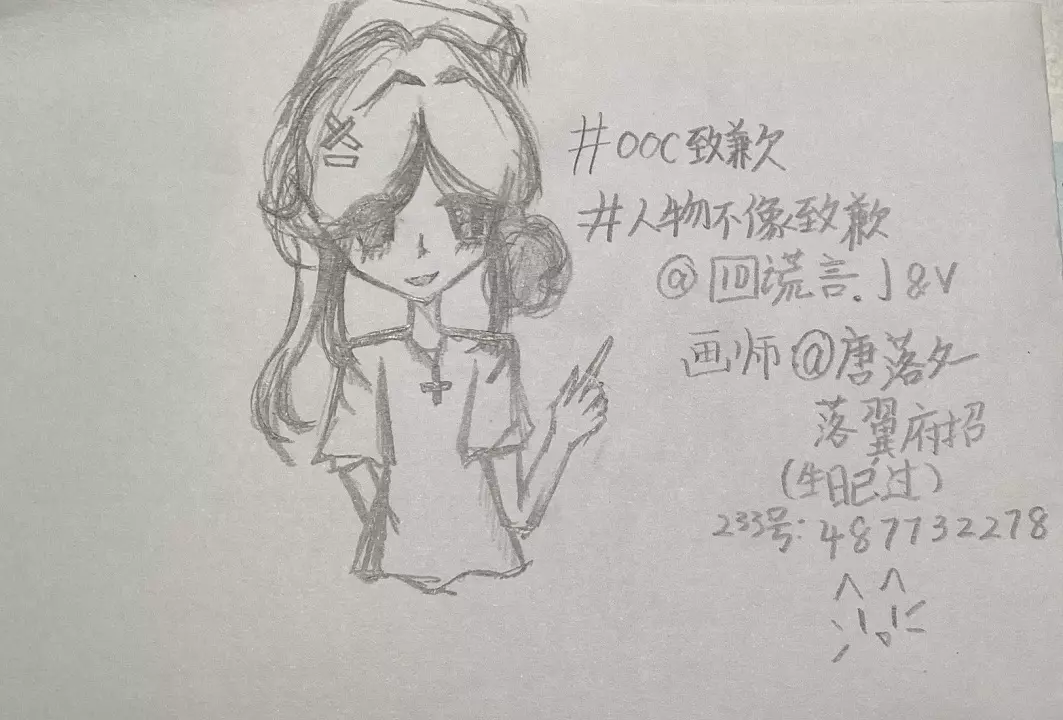 #OOC致歉
#人物不像致歉
@回谎言.J&V
画师@唐落夕
落翼府招
(生日已过)
233号:487732278